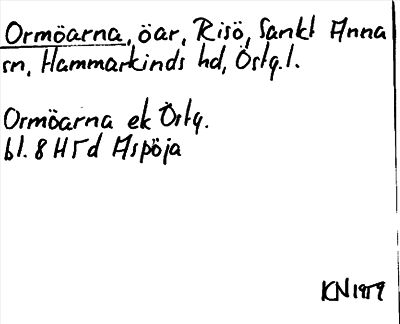 Ormöarna, öar, Risö, Sankt Anna
sn, Hammarkinds hd, Östg.l.
Ormöarna ek Östg.
bl. 8 H 5 d Aspöja
KN 1959